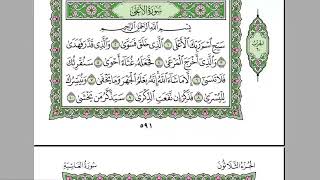 سُورَةُ الأَعْلَى
بِسْمِ اللَّهِ الرَّحْمَٰنِ الرَّحِيمِ
سَبِّحِ اسْمَ رَبِّكَ الْأَعْلَى ١ الَّذِي خَلَقَ فَسَوَّىٰ ٢ وَالَّذِي قَدَّرَ فَهَدَىٰ
٣ وَالَّذِي أَخْرَجَ الْمَرْعَىٰ ٤ فَجَعَلَهُ غُثَاءً أَحْوَىٰ ٥ سَنُقْرِئُكَ
فَلَا تَنْسَىٰ ٦ إِلَّا مَا شَاءَ اللَّهُ إِنَّهُ يَعْلَمُ الْجَهْرَ وَمَا يَخْفَىٰ ٧ وَنُيَسِّرُكَ
لِلْيُسْرَىٰ ٨ فَذَكِّرْ إِنْ نَفَعَتِ الذِّكْرَىٰ ٩ سَيَذَّكَّرُ مَنْ يَخْشَىٰ ١٠
٥٩١
الجزء الثلاثون
سورة الغاشية